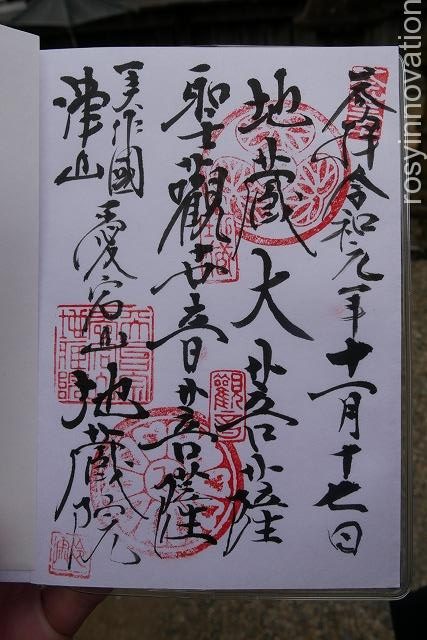 奉拝 令和元年十一月十七日
地蔵大菩薩
聖観世音菩薩
美作國
津山
愛宕山地蔵院
観音
rosyinnovation